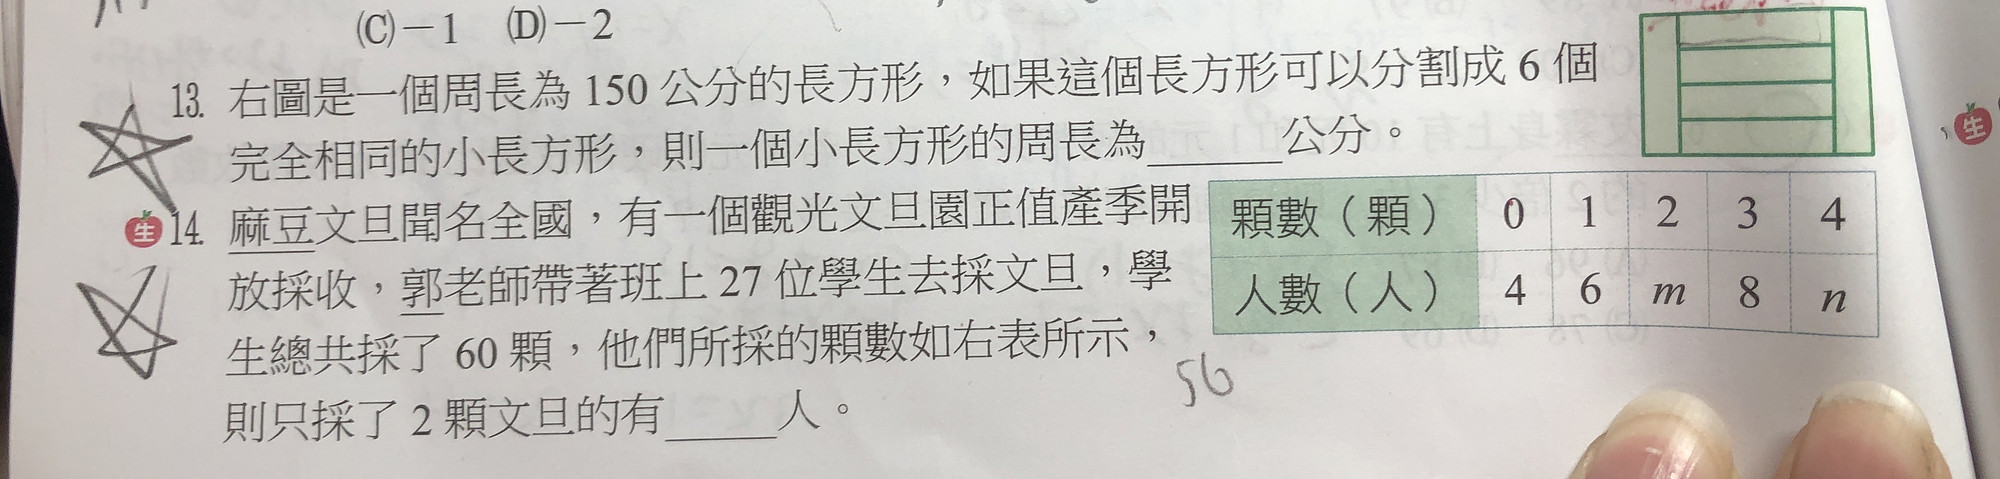 (C)－1 (D)－2
13. 右圖是一個周長為 150 公分的長方形，如果這個長方形可以分割成 6 個
完全相同的小長方形，則一個小長方形的周長為______公分。
生 14. 麻豆文旦聞名全國，有一個觀光文旦園正值產季開
放採收，郭老師帶著班上 27 位學生去採文旦，學
生總共採了 60 顆，他們所採的顆數如右表所示，
則只採了 2 顆文旦的有_____人。
顆數（顆） 0 1 2 3 4
人數（人） 4 6 m 8 n
56
生